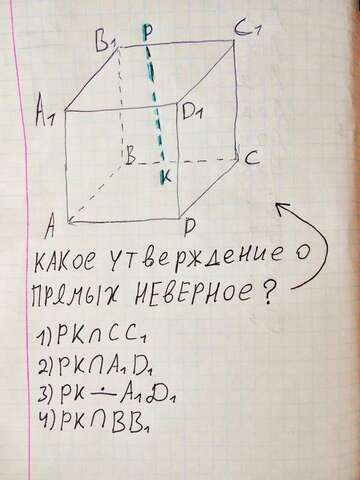 B₁ P C₁
A₁ D₁
B K C
A D
КАКОЕ УТВЕРЖДЕНИЕ О
ПРЯМЫХ НЕВЕРНОЕ?
1) PK∩CC₁
2) PK∩A₁D₁
3) PK ∸ A₁D₁
4) PK∩BB₁